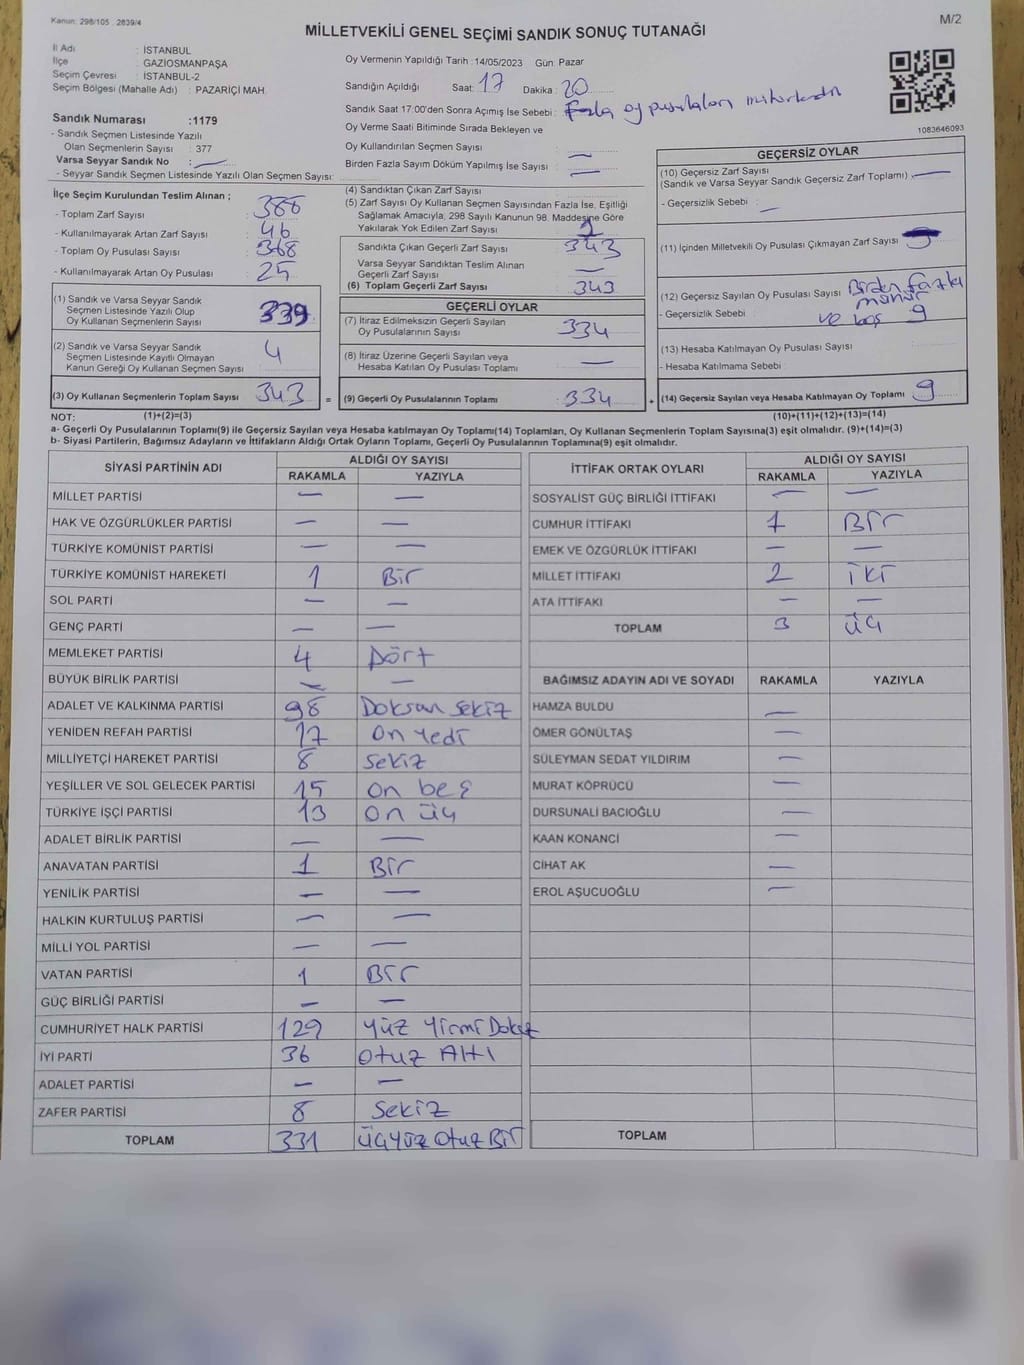 Kanun: 298/105 . 2839/4
M/2
MİLLETVEKİLİ GENEL SEÇİMİ SANDIK SONUÇ TUTANAĞI
İl Adı : İSTANBUL
İlçe : GAZİOSMANPAŞA
Seçim Çevresi : İSTANBUL-2
Seçim Bölgesi (Mahalle Adı) : PAZARİÇİ MAH.
Sandık Numarası :1179
- Sandık Seçmen Listesinde Yazılı
Olan Seçmenlerin Sayısı : 377
Varsa Seyyar Sandık No : —
- Seyyar Sandık Seçmen Listesinde Yazılı Olan Seçmen Sayısı:
Oy Vermenin Yapıldığı Tarih : 14/05/2023 Gün: Pazar
Sandığın Açıldığı Saat: 17 Dakika : 20
Sandık Saat 17:00'den Sonra Açımış İse Sebebi : Fazla oy pusulaları
Oy Verme Saati Bitiminde Sırada Bekleyen ve
Oy Kullandırılan Seçmen Sayısı —
Birden Fazla Sayım Döküm Yapılmış İse Sayısı —
1083646093
İlçe Seçim Kurulundan Teslim Alınan ;
- Toplam Zarf Sayısı 386
- Kullanılmayarak Artan Zarf Sayısı 46
- Toplam Oy Pusulası Sayısı 368
- Kullanılmayarak Artan Oy Pusulası 25
(1) Sandık ve Varsa Seyyar Sandık
Seçmen Listesinde Yazılı Olup
Oy Kullanan Seçmenlerin Sayısı 339
(2) Sandık ve Varsa Seyyar Sandık
Seçmen Listesinde Kayıtlı Olmayan
Kanun Gereği Oy Kullanan Seçmen Sayısı 4
(3) Oy Kullanan Seçmenlerin Toplam Sayısı 343 =
(4) Sandıktan Çıkan Zarf Sayısı
(5) Zarf Sayısı Oy Kullanan Seçmen Sayısından Fazla İse, Eşitliği
Sağlamak Amacıyla; 298 Sayılı Kanunun 98. Maddesine Göre
Yakılarak Yok Edilen Zarf Sayısı
Sandıkta Çıkan Geçerli Zarf Sayısı 343
Varsa Seyyar Sandıktan Teslim Alınan
Geçerli Zarf Sayısı —
(6) Toplam Geçerli Zarf Sayısı 343
GEÇERLİ OYLAR
(7) İtiraz Edilmeksizin Geçerli Sayılan
Oy Pusulalarının Sayısı 334
(8) İtiraz Üzerine Geçerli Sayılan veya
Hesaba Katılan Oy Pusulası Toplamı —
(9) Geçerli Oy Pusulalarının Toplamı 334 +
GEÇERSİZ OYLAR
(10) Geçersiz Zarf Sayısı
(Sandık ve Varsa Seyyar Sandık Geçersiz Zarf Toplamı) —
- Geçersizlik Sebebi : —
(11) İçinden Milletvekili Oy Pusulası Çıkmayan Zarf Sayısı
(12) Geçersiz Sayılan Oy Pusulası Sayısı Birden fazla
mühür
- Geçersizlik Sebebi ve boş 9
(13) Hesaba Katılmayan Oy Pusulası Sayısı
- Hesaba Katılmama Sebebi :
(14) Geçersiz Sayılan veya Hesaba Katılmayan Oy Toplamı 9
NOT: (1)+(2)=(3) (10)+(11)+(12)+(13)=(14)
a- Geçerli Oy Pusulalarının Toplamı(9) ile Geçersiz Sayılan veya Hesaba katılmayan Oy Toplamı(14) Toplamları, Oy Kullanan Seçmenlerin Toplam Sayısına(3) eşit olmalıdır. (9)+(14)=(3)
b- Siyasi Partilerin, Bağımsız Adayların ve İttifakların Aldığı Ortak Oyların Toplamı, Geçerli Oy Pusulalarının Toplamına(9) eşit olmalıdır.
SİYASİ PARTİNİN ADI ALDIĞI OY SAYISI
RAKAMLA YAZIYLA
MİLLET PARTİSİ — —
HAK VE ÖZGÜRLÜKLER PARTİSİ — —
TÜRKİYE KOMÜNİST PARTİSİ — —
TÜRKİYE KOMÜNİST HAREKETİ 1 Bir
SOL PARTİ — —
GENÇ PARTİ — —
MEMLEKET PARTİSİ 4 Dört
BÜYÜK BİRLİK PARTİSİ — —
ADALET VE KALKINMA PARTİSİ 98 Doksan sekiz
YENİDEN REFAH PARTİSİ 17 On Yedi
MİLLİYETÇİ HAREKET PARTİSİ 8 Sekiz
YEŞİLLER VE SOL GELECEK PARTİSİ 15 On beş
TÜRKİYE İŞÇİ PARTİSİ 13 On üç
ADALET BİRLİK PARTİSİ — —
ANAVATAN PARTİSİ 1 Bir
YENİLİK PARTİSİ — —
HALKIN KURTULUŞ PARTİSİ — —
MİLLİ YOL PARTİSİ — —
VATAN PARTİSİ 1 Bir
GÜÇ BİRLİĞİ PARTİSİ — —
CUMHURİYET HALK PARTİSİ 129 Yüz Yirmi Dokuz
İYİ PARTİ 36 Otuz Altı
ADALET PARTİSİ — —
ZAFER PARTİSİ 8 Sekiz
TOPLAM 331 Üçyüz Otuz Bir
İTTİFAK ORTAK OYLARI ALDIĞI OY SAYISI
RAKAMLA YAZIYLA
SOSYALİST GÜÇ BİRLİĞİ İTTİFAKI — —
CUMHUR İTTİFAKI 1 Bir
EMEK VE ÖZGÜRLÜK İTTİFAKI — —
MİLLET İTTİFAKI 2 İki
ATA İTTİFAKI — —
TOPLAM 3 üç
BAĞIMSIZ ADAYIN ADI VE SOYADI RAKAMLA YAZIYLA
HAMZA BULDU —
ÖMER GÖNÜLTAŞ —
SÜLEYMAN SEDAT YILDIRIM —
MURAT KÖPRÜCÜ —
DURSUNALİ BACIOĞLU —
KAAN KONANCİ —
CİHAT AK —
EROL AŞUCUOĞLU —
TOPLAM